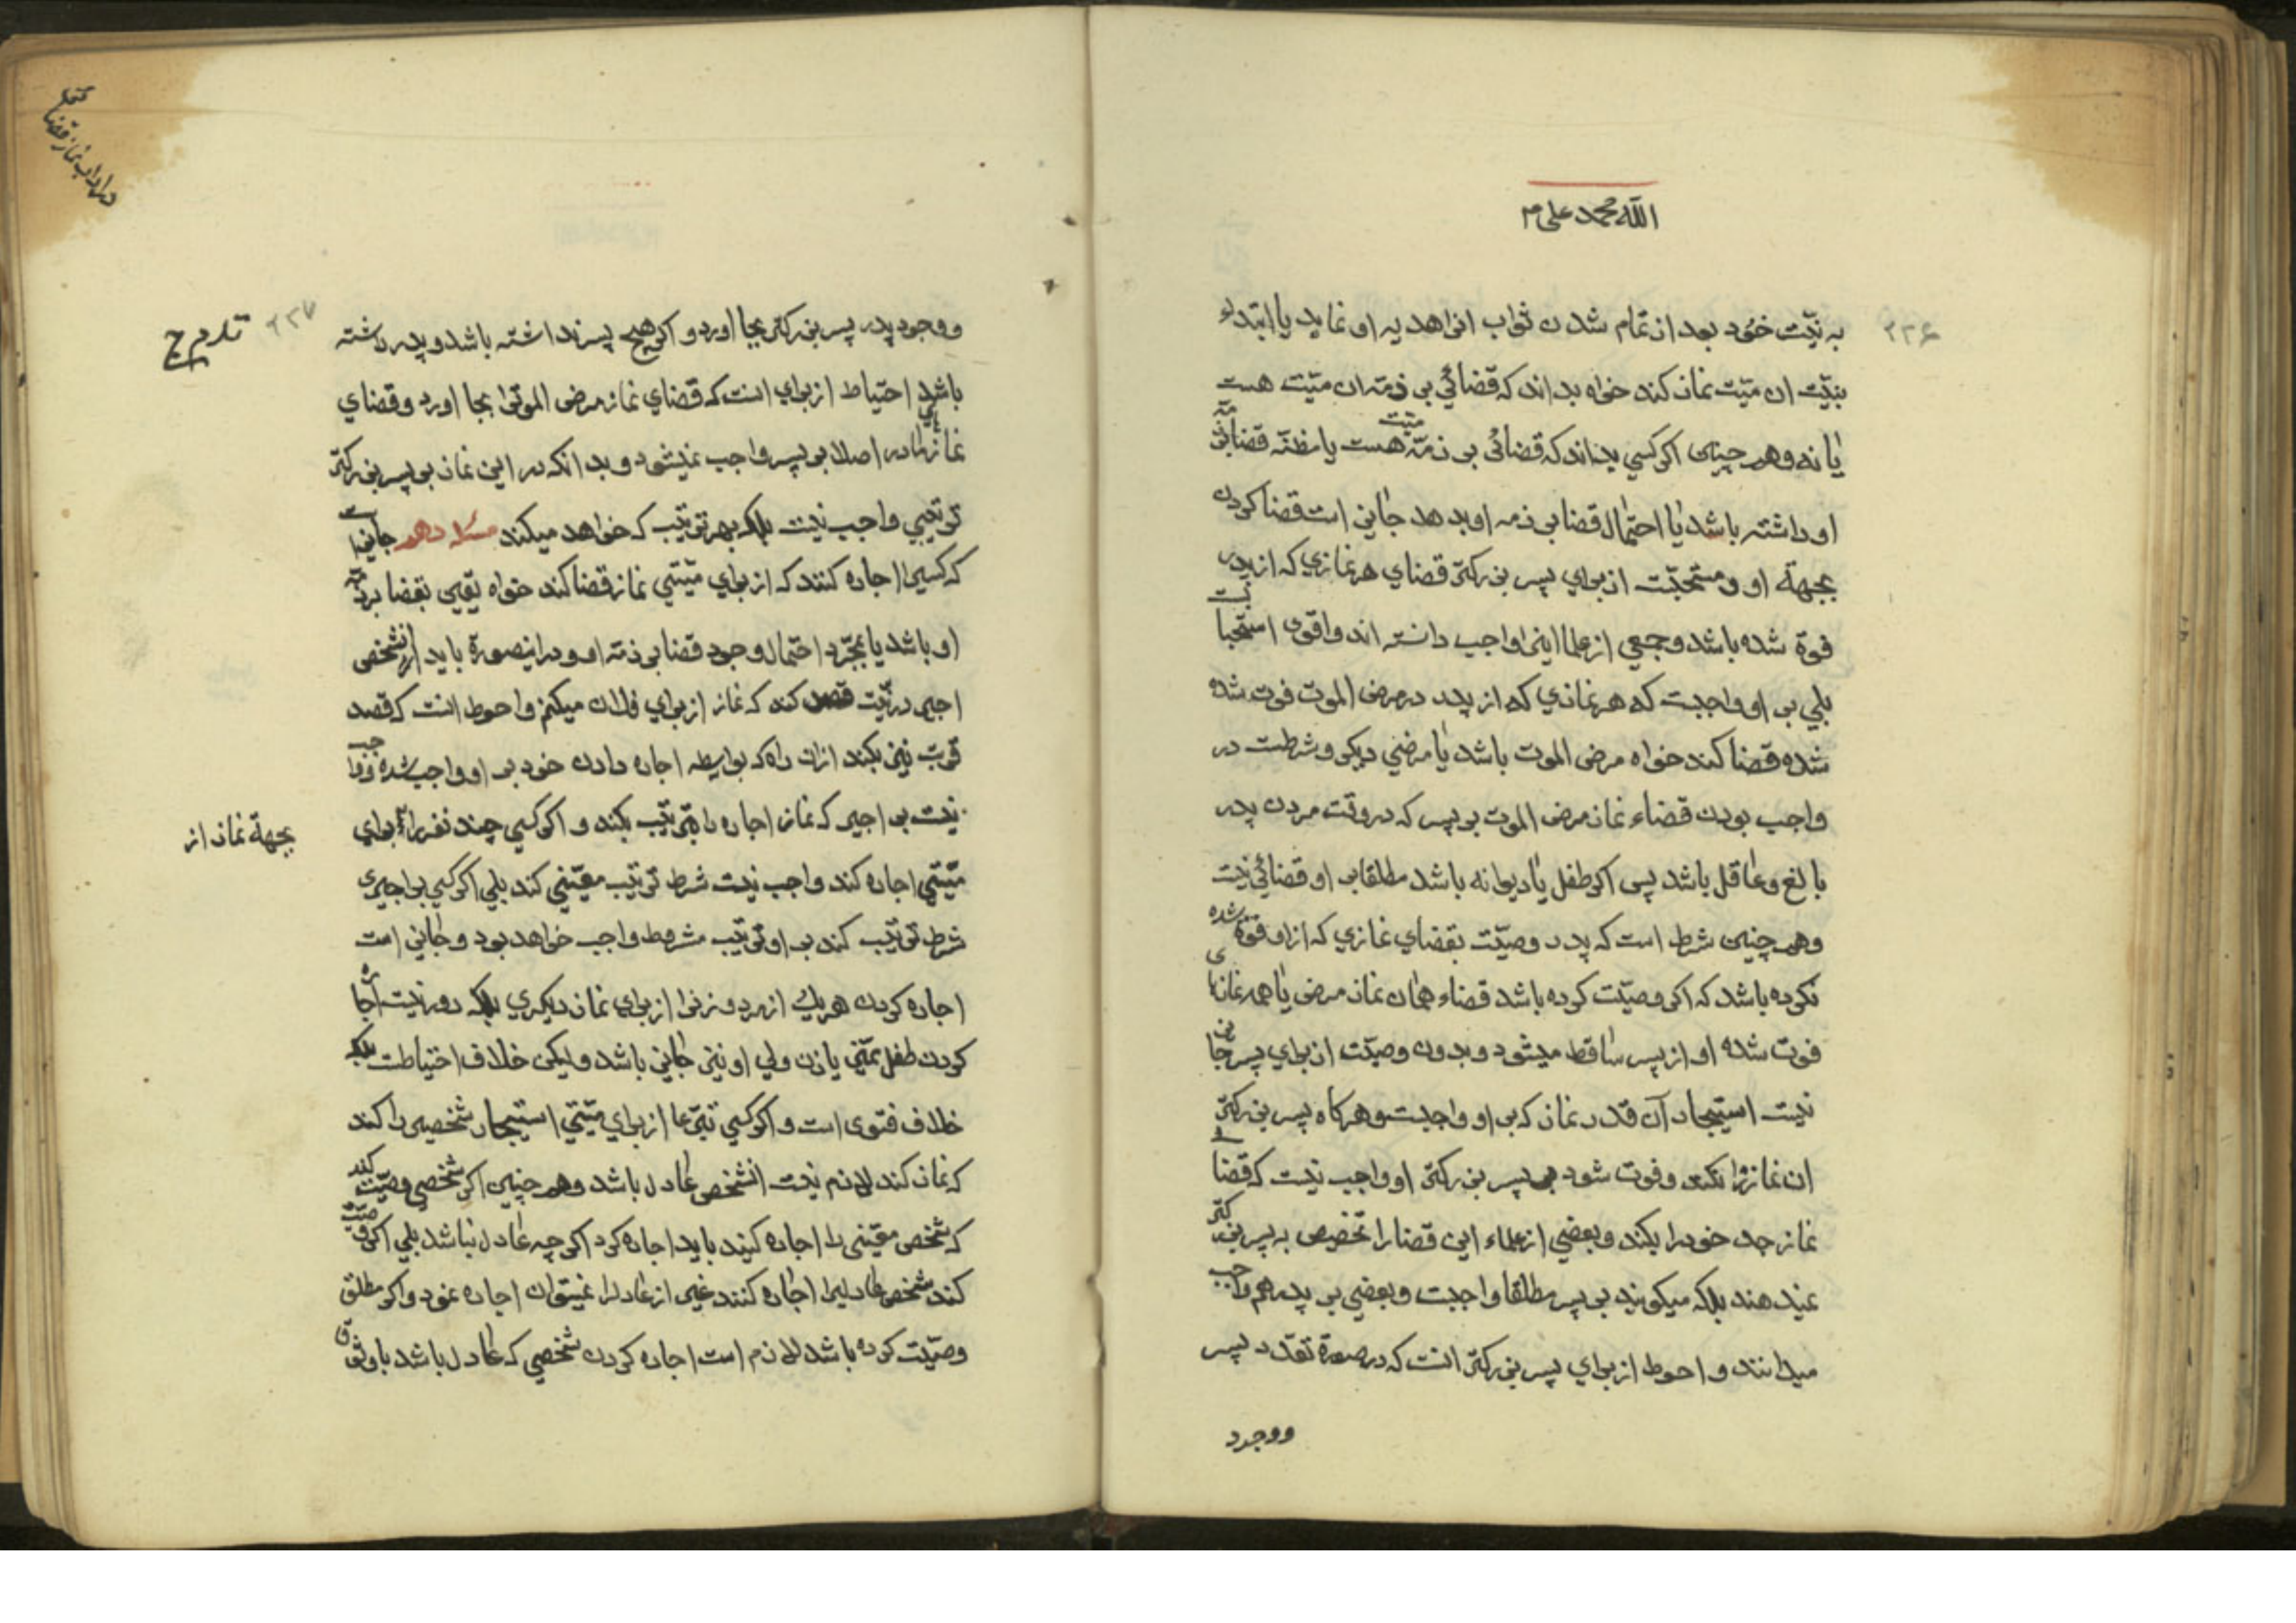 الله محمد علی م
۲۲۶
به نیّت خود بعد از تمام شدن ثواب انرا هدیه او نماید یا ابتداء
بنیّت ان میّت نماز کند خواه بداند که قضائي بر ذمّه ان میّت هست
یا نه و هم چنین اکر کسي بداند که قضائي بر ذمّه میّت هست یا مظنّه قضا بر ذمّه
او داشته باشد یا احتمال قضا بر ذمه او بدهد جایز است قضا کردن
بجهة او و مستحبّست از براي پسر بزرکتر قضاي هر نمازي که از پدر
فوة شده باشد و جمعي از علما اینرا واجب دانسته اند و اقوی استحبابست
بلي بر او واجبت که هر نمازي که از پدر در مرض الموت فوت شده
شده قضا کند خواه مرض الموت باشد یا مرضي دیکر و شرطست در
واجب بودن قضاء نماز مرض الموت بر پسر که در وقت مردن پدر
بالغ و عاقل باشد پس اکر طفل یا دیوانه باشد مطلقا بر او قضائي نیست
و هم چنین شرط است که پدر وصیّت بقضاي نمازي که از او فوة شده
نکرده باشد که اکر وصیّت کرده باشد قضاء همان نماز مرض یا همه نمازهاي
فوت شده او از پسر ساقط میشود و بدون وصیّت از براي پسر جایز
نیست استیجار آن قدر نماز که بر او واجبست و هر کاه پسر بزرکتر
ان نماز را نکند و فوت شود بر پسر بزرکتر او واجب نیست که قضاي
نماز جد خود را بکند و بعضي از علماء این قضا را تخصیص به پسر بزرکتر
نمیدهند بلکه میکویند بر پسر مطلقا واجبت و بعضي بر پدر هم واجب
میدانند و احوط از براي پسر بزرکتر انست که در صورة تعدّد پسر
و وجود
در اداب نماز قضا
۲۲۷
و وجود پدر پسر بزرکتر بجا اورد و اکر هیچ پسر نداشته باشد و پدر داشته
باشد احتیاط از براي انست که قضاي نماز مرض الموترا بجا اورد و قضاي
نماز مادر اصلا بر پسر واجب نمیشود و بدانکه در این نماز بر پسر بزرکتر
ترتیبي واجب نیست بلکه بهر ترتیب که خواهد میکند مسئله دهم جایز است
که کسیرا اجاره کنند که از براي میّتي نماز قضا کند خواه یقین بقضا بر ذمّه
او باشد یا بمجرّد احتمال وجود قضا بر ذمّه او و در اینصورة باید ان شخص
اجیر در نیّت قصد کند که نماز از براي فلان میکنم و احوط انست که قصد
قربت نیز بکند از ان راه که بواسطه اجاره دادن خود بر او واجب شده و واجب
نیست بر اجیر که نماز اجاره را بترتیب بکند و اکر کسي چند نفر را براي
بجهة نماز از
میّتي اجاره کند واجب نیست شرط ترتیب معیّني کند بلي اکر کسي بر اجیری
شرط ترتیب کند بر او ترتیب مشروط واجب خواهد بود و جایز است
اجاره کردن هر یك از مرد و زنرا از براي نماز دیکري بلکه دور نیست اجاره
کردن طفل ممیّز باذن ولي او نیز جایز باشد و لیکن خلاف احتیاطست بلکه
خلاف فتوی است و اکر کسي تبرّعا از براي میّتي استیجار شخصیرا کند
که نماز کند لازم نیست انشخص عادل باشد و هم چنین اکر شخصي وصیّت کند
که شخص معیّنی را اجاره کنند باید اجاره کرد اکر چه عادل نباشد بلي اکر وصیّت
کند شخص عادلیرا اجاره کنند غیر از عادلرا نمیتوان اجاره نمود و اکر مطلق
وصیّت کرده باشد لازم است اجاره کردن شخصي که عادل باشد یا وثوق